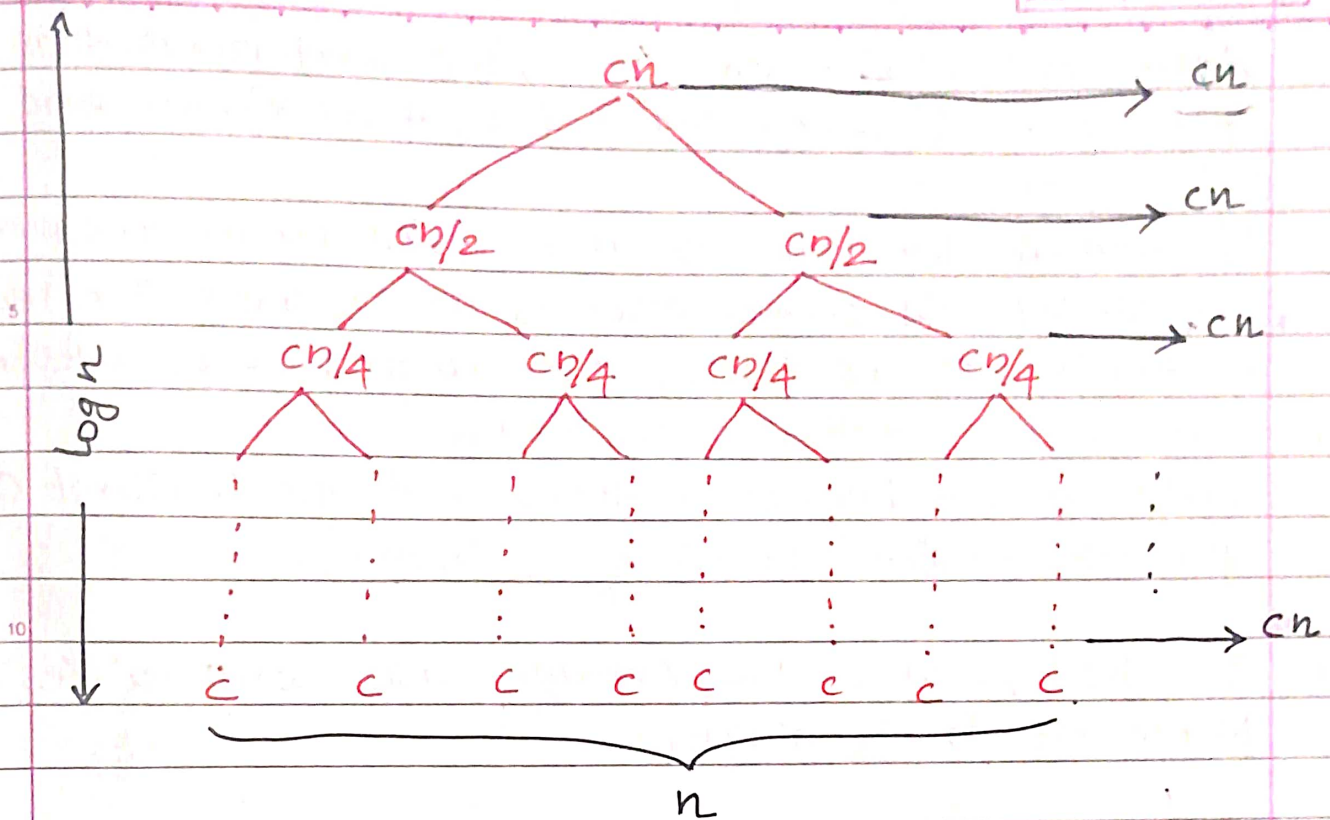 cn cn
cn/2 cn/2 cn
5
cn/4 cn/4 cn/4 cn/4 cn
log n
10
cn
c c c c c c c c
n